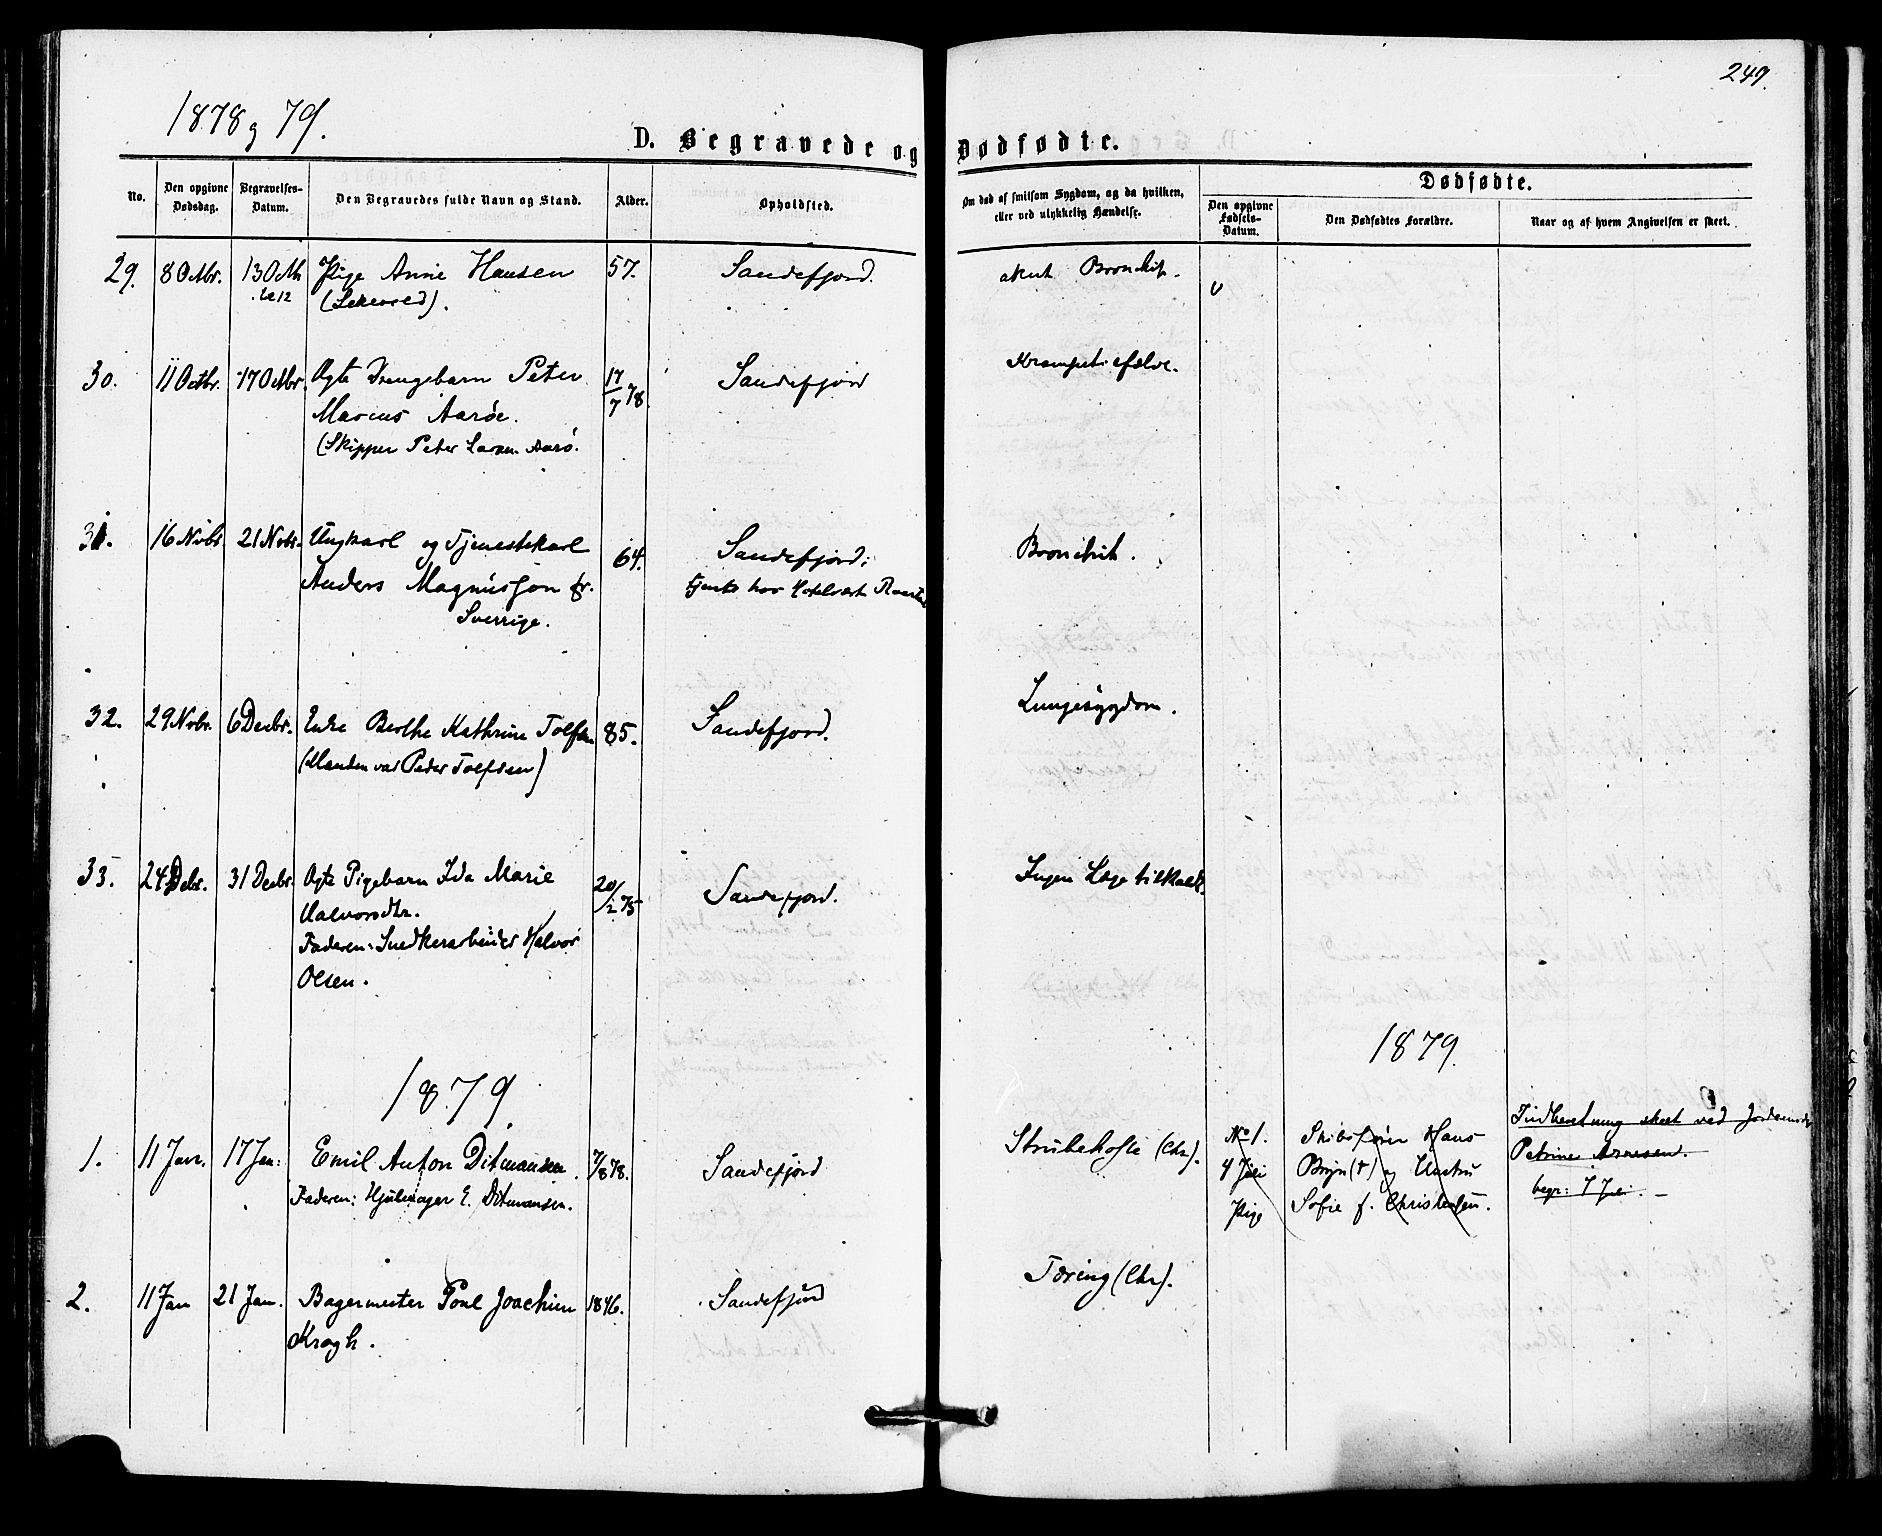 249.
1878 og 79.
D. Begravede og Dødfødte.
No.
Den opgivne Dødsdag.
Begravelses-Datum.
Den Begravedes fulde Navn og Stand.
Alder.
Opholdsted.
Om død af smitsom Sygdom, og da hvilken, eller ved ulykkelig Hændelse.
Dødfødte.
Den opgivne Fødsels-Datum.
Den Dødfødtes Forældre.
Naar og af hvem Angivelsen er skeet.
29. 8 Octbr. 13 Octb Pige Anne Hansen 57. Sandefjord. akut Bronchit.
30. 11 Octbr. 17 Octbr. Ægte Drengebarn Peter 17/7 78. Sandefjord Krampetilfælde.
Marius Aarøe.
(Skipper Peter Laren. Aarø.
31. 16 Novbr. 21 Novbr. Ungkarl og Tjenestekarl 64. Sandefjord; Bronchit.
Anders Magnusson fr. tjente hos Hotelvært
Sverrige.
32. 29 Novbr. 6 Decbr. Enke Berthe Kathrine Tolfsen 85. Sandefjord. Lungesygdom.
(Manden var Peder Tolfsen)
33. 24 Debr. 31 Decbr. Ægte Pigebarn Ida Marie 20/2 75 Sandefjord. Ingen Læge tilkaldt.
Halvorsdtr.
Faderen: Snedkerarbeider Halvor
Olsen.
1879. 1879.
1. 11 Jan. 17 Jan: Emil Anton Ditmansen. 7/8 78. Sandefjord Strubehoste (Chr).
Faderen: Hjulmager E. Ditmansen.
No 1. Skibsfører Hans Indberetning skeet ved Jordemoder
4 Juli Bryn (†) og Hustru Petrine Arnesen.
Pige Sofie f. Christensen. begr: 7 Juli. –
2. 11 Jan 21 Jan. Bagermester Poul Joachim 1846. Sandefjord Tæring (Chr).
Kragh.